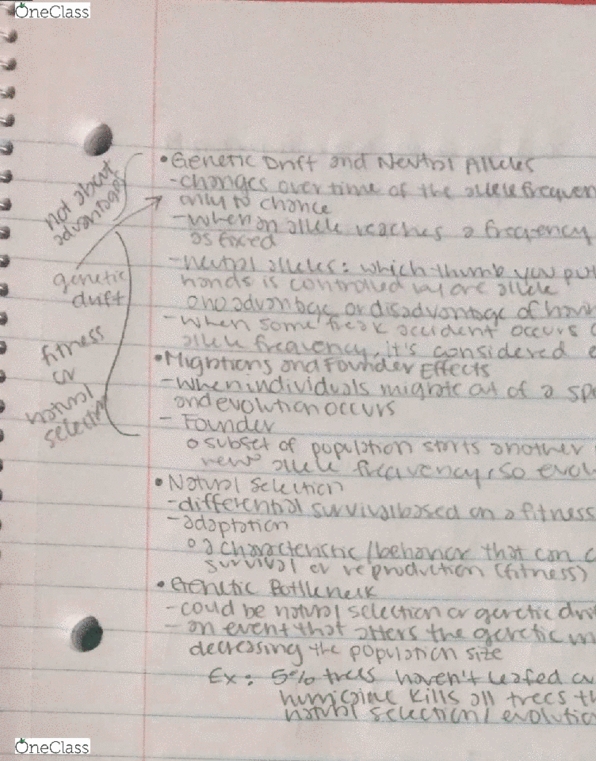 OneClass
• Genetic Drift and Neutral Alleles
- changes over time of the allele frequen
only to chance
- when an allele reaches a frequency
as fixed
- neutral alleles: which thumb you put
hands is controlled by one allele
o no advantage or disadvantage of havin
- When some freak accident occurs
allele frequency, it's considered
• Migrations and Founder Effects
- when individuals migrate out of a spe
and evolution occurs
- Founder
o subset of population starts another
new allele frequency, so evol
• Natural Selection
- differential survival based on a fitness
- adaptation
o a characteristic/behavior that can
survival or reproduction (fitness)
• Genetic Bottleneck
- could be natural selection or genetic drif
- an event that alters the genetic
decreasing the population size
Ex: 5% trees haven't leafed
hurricane kills all trees th
natural selection/evolutio
not about
advantages
genetic
drift
fitness
or
natural
selection
OneClass